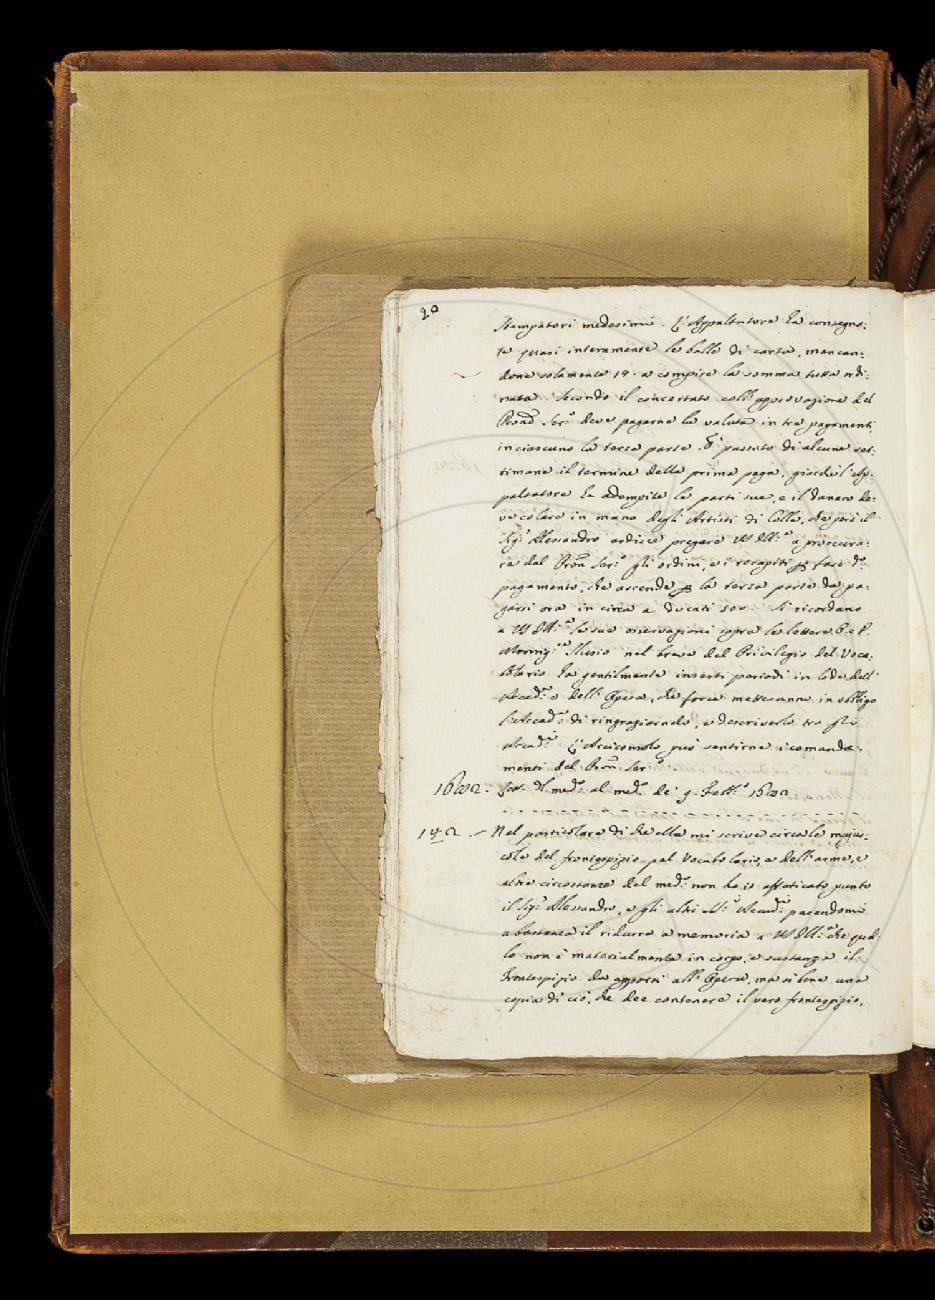 20
stampatori medesimi. L'Appaltatore ha consegna:
te quasi interamente le balle di carta, mancan:
done solamente 14. a compire la somma tutta ordi:
nata. Secondo il concertato coll'approvazione del
Pron̄e Ser.º deve pagarne la valuta in tre pagamenti
in ciascuno la terza parte. È passato di alcune set:
timane il termine della prima paga, giacchè l'Ap:
paltatore ha adempite le parti sue, e il danaro de:
ve colare in mano degli Artisti di Colle, che però il
Sig.r Alessandro ardisce pregare VS Ill.ma a proccura:
re dal Pron̄e Ser.º gli ordini, e i recapiti per fare d.º
pagamento, che ascende per la terza parte da pa:
garsi ora in circa a ducati 500. Si ricordano
a VS Ill.ma le sue osservazioni sopra le lettere B. e P.
Monsig.re Slusio nel breve del Privilegio del Voca:
bolario ha gentilmente inserti periodi in lode dell'
Accad.a e dell'Opera, che forse metteranno in obbligo
l'Accad.a di ringraziarlo, e descriverlo tra gli
Accad.ci L'Arciconsolo può sentirne i comanda:
menti del Pron̄e Ser.º
1682. Del med.º al med.º de' 9. Sett.e 1682
142. Nel particolare di che ella mi scrive circa le majus:
cole del frontespizio pel Vocabolario, e dell'arme, e
altre circostanze del med.º non ho io affaticato punto
il Sig.r Alessandro, e gli altri SS.i Accad.ci parendomi
a bastanza il ridurre a memoria a VS Ill.ma che quel:
lo non è materialmente in corpo, e sustanza il
Frontespizio da apporsi all'Opera, ma sibene una
copia di ciò, che dee contenere il vero frontespizio,